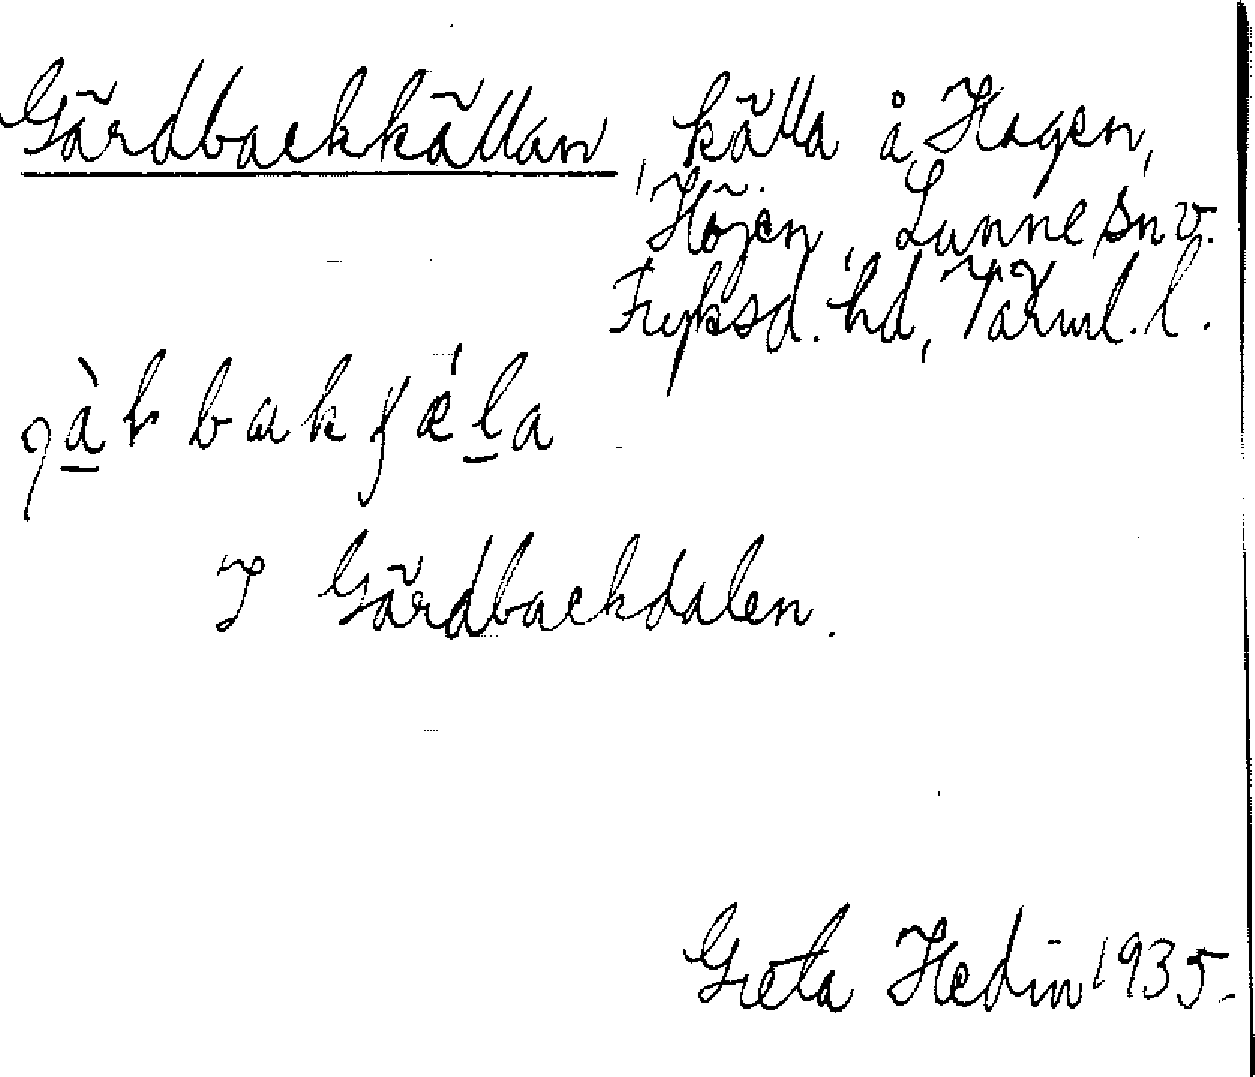 Gärdbackkällan, källa å Hagen,
Höjen, Lunne sn v.
Fryksd. hd, Värml. l.
I Gärdbackdalen.
Greta Hedin 1935.